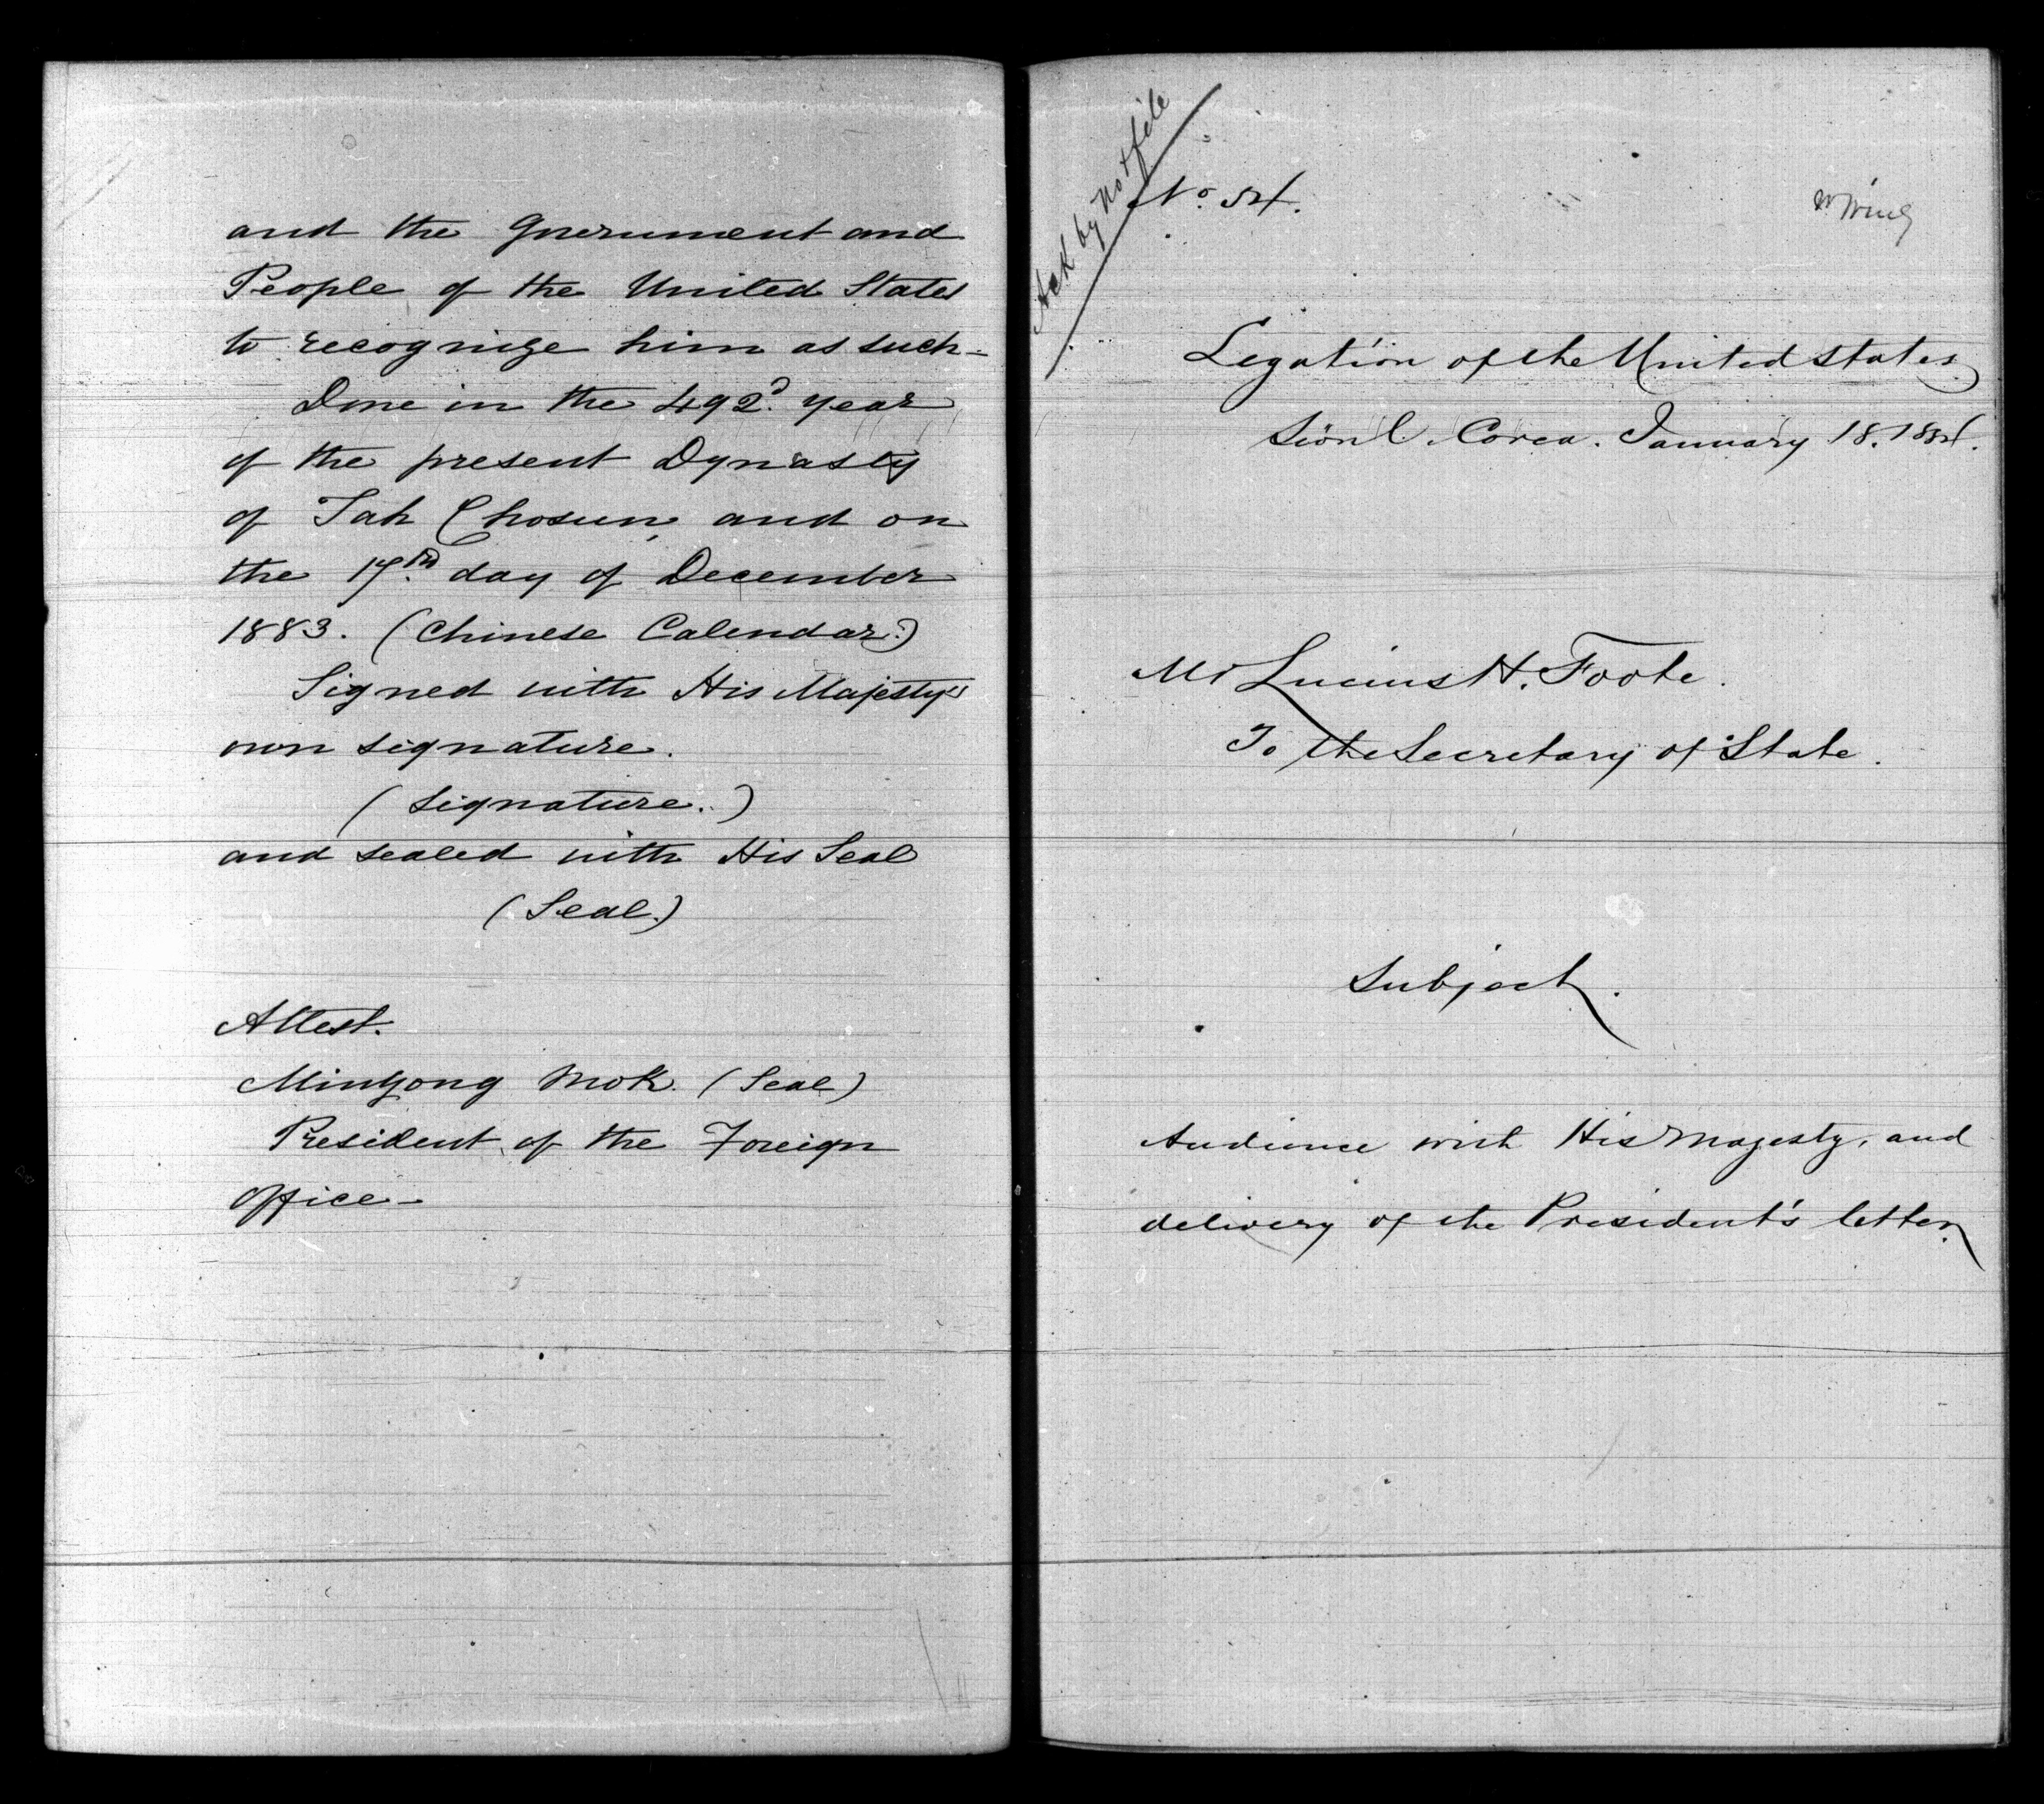 and the Government and
People of the United States
to recognize him as such—
Done in the 492d. year
of the present Dynasty
of Tah Chosun, and on
the 17th. day of December
1883. (Chinese Calendar.)
Signed with His Majesty's
own signature.
(Signature.)
and sealed with His Seal
(Seal.)
Attest.
Min Yong Mok. (Seal)
President of the Foreign
Office—
Ack by Not file
No. 54.
Legation of the United States
Sioul. Corea. January 18. 1884.
Mr Lucius H. Foote.
To the Secretary of State.
Subject.
Audience with His Majesty, and
delivery of the President's letter.